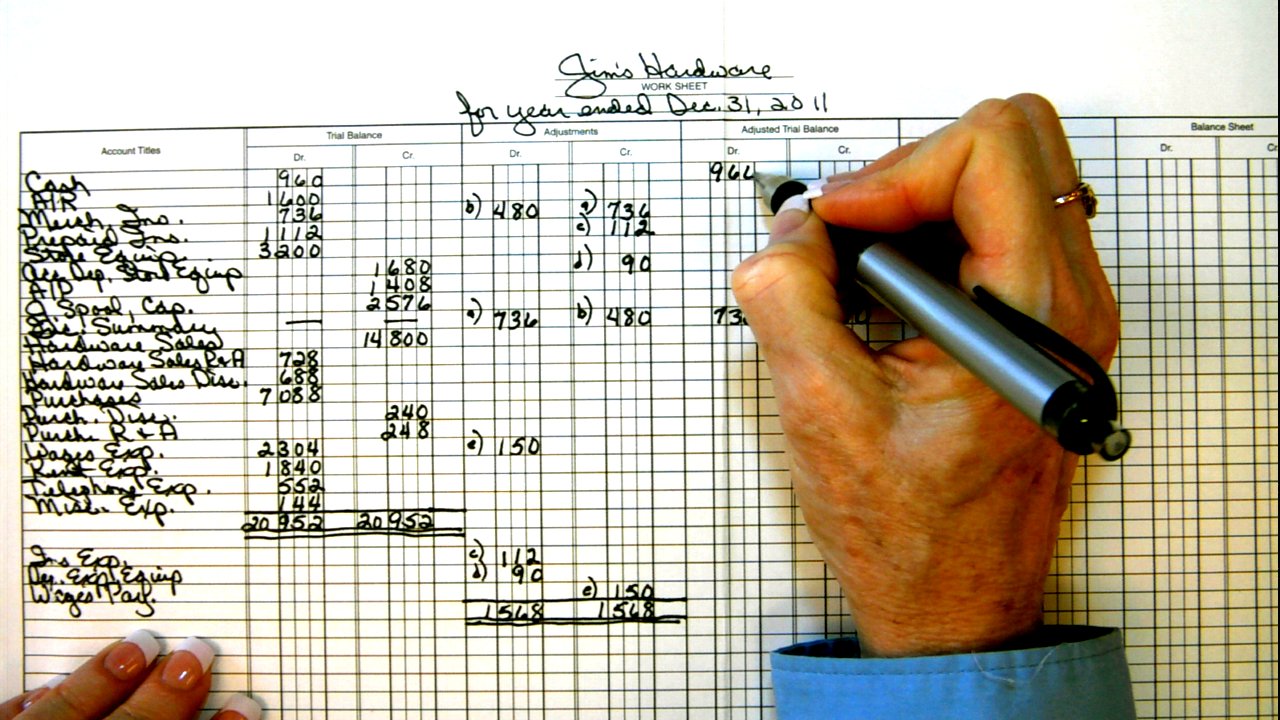 Jim's Hardware
WORK SHEET
for year ended Dec. 31, 2011
Trial Balance Adjustments Adjusted Trial Balance Balance Sheet
Account Titles Dr. Cr. Dr. Cr. Dr. Cr. Dr. Cr
Cash 960 960
A/R 1600
Merch. Inv. 736 b) 480 a) 736
Prepaid Ins. 1112 c) 112
Store Equip. 3200
Acc. Dep. Store Equip 1680 d) 90
A/P 1408
Spool, Cap. 2576
Summary — — a) 736 b) 480 73
Hardware Sales 14800
Hardware Sales R+A 728
Hardware Sales Disc. 688
Purchases 7088
Purch. Disc. 240
Purch. R+A 248
Wages Exp. 2304 e) 150
Rent Exp. 1840
Telephone Exp. 552
Misc. Exp. 144
20952 20952
Ins Exp. c) 112
Dep. Exp. Equip d) 90
Wages Pay. e) 150
1568 1568